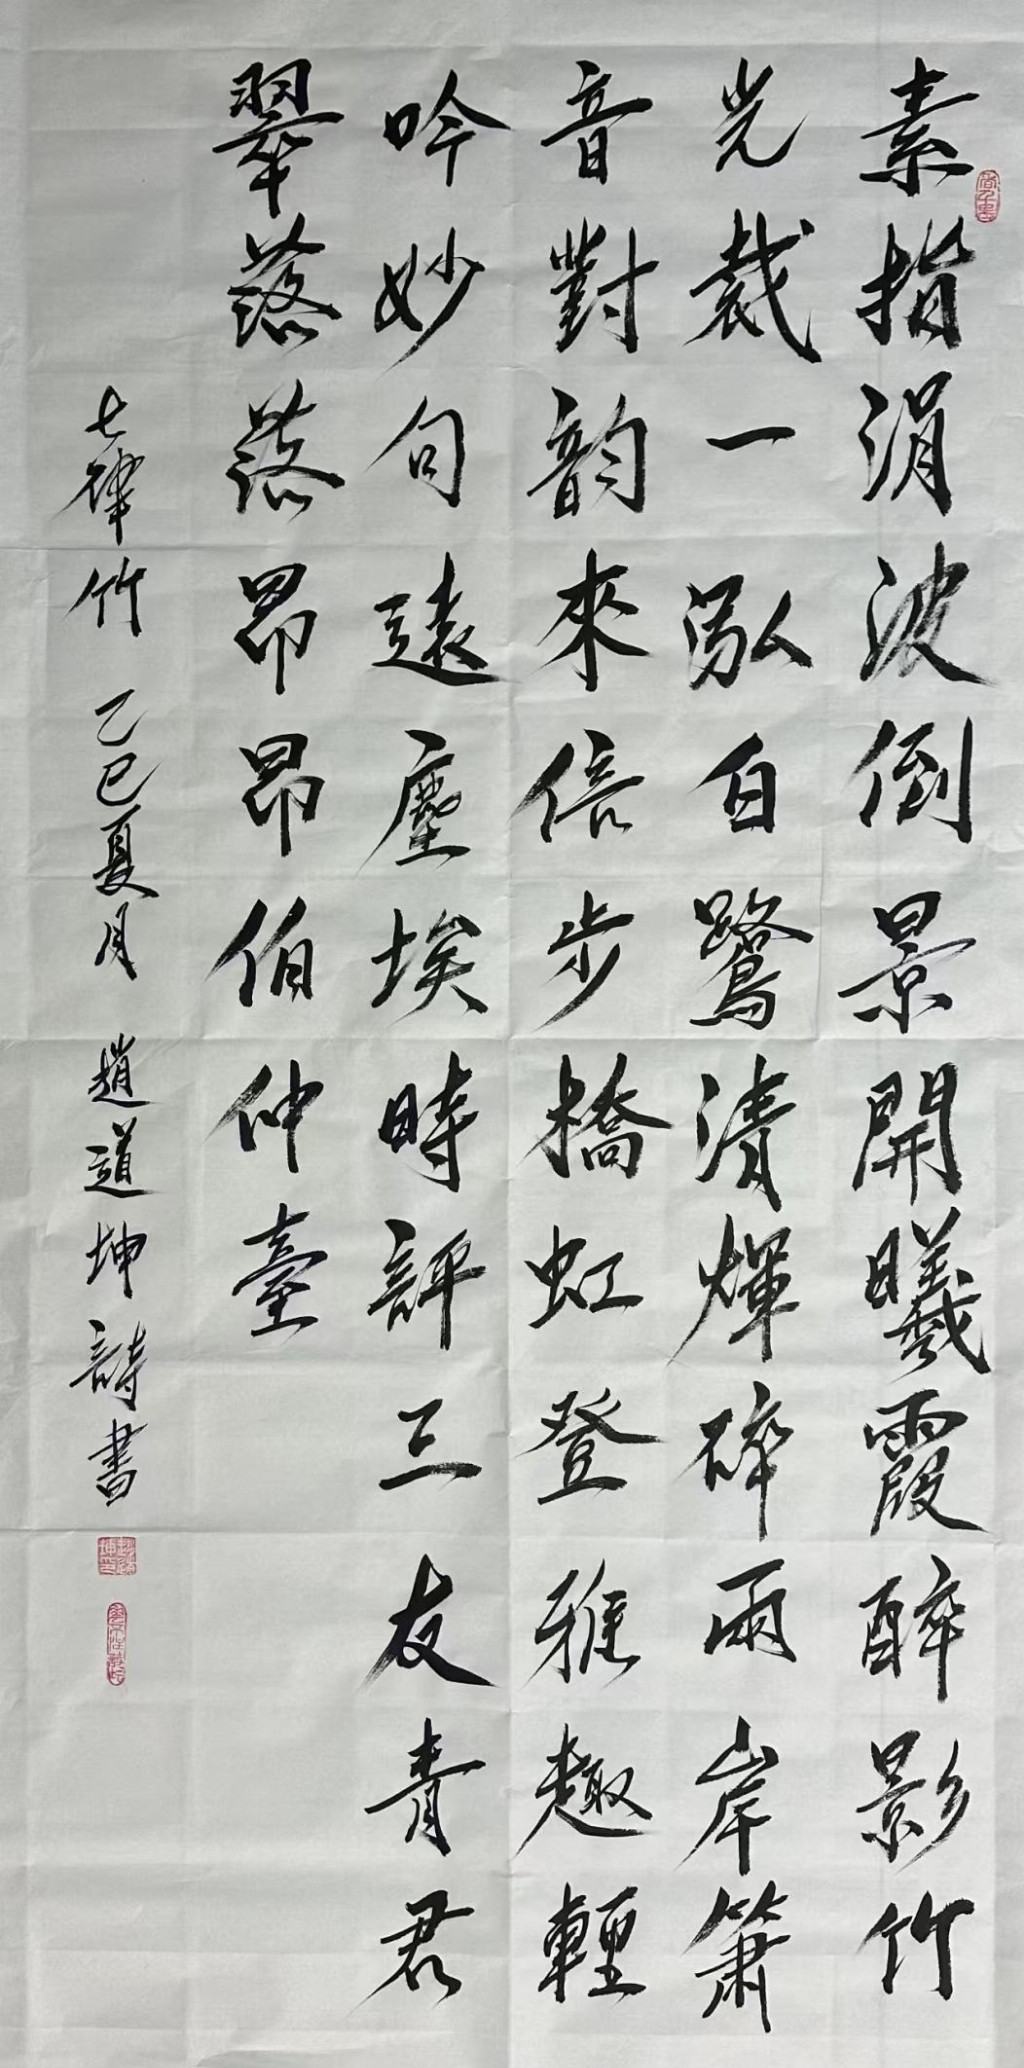 素指涓波倒景開曦霞醉影竹
光裁一泓白鷺清輝碎雨岸簫
音對韵來倍步橋虹登雅趣輕
吟妙句遠塵埃時評三友青君
翠落落昂昂伯仲臺
七律竹 乙巳夏月 趙道坤詩書